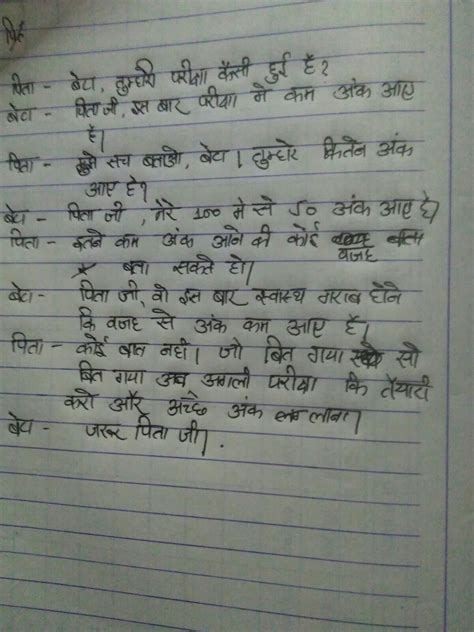 पिता - बेटा, तुम्हारी परीक्षा कैसी हुई है?
बेटा - पिता जी, इस बार परीक्षा मे कम अंक आए
है।
पिता - मुझे सच बताओ, बेटा। तुम्हारे कितने अंक
आए है?
बेटा - पिता जी, मेरे 100 मे से 50 अंक आए है।
पिता - इतने कम अंक आने की कोई वजह
बता सकते हो।
बेटा - पिता जी, वो इस बार स्वास्थ खराब होने
कि वजह से अंक कम आए है।
पिता - कोई बात नही। जो बित गया सो
बित गया अब अगली परीक्षा कि तैयारी
करो और अच्छे अंक लाना।
बेटा - जरूर पिता जी।